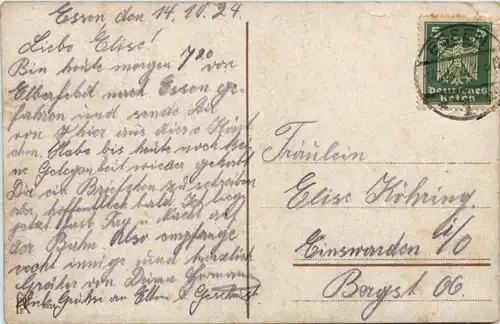 Essen, den 14.10.24.
Liebe Elise!
Bin heute morgen 7 20 von
Elberfeld nach Essen ge-
fahren und sende Dir
von hier aus diese Kärt-
chen. Habe bis heute noch kei-
ne Gelegenheit wieder gehabt
Dir ein Briefchen zu schreiben
aber, hoffentlich bald. Ich lieg
jetzt fast Tag u. Nacht auf
der Bahn. Also empfange
recht innige und herzlich
Grüße von Deinem Hermann
Viele Grüße an Eltern u. Geschwist.
5 5
Deutsches
Reich
ESSEN
Fräulein
Elise Köhring
Einswarden i/O
Bergst 06.